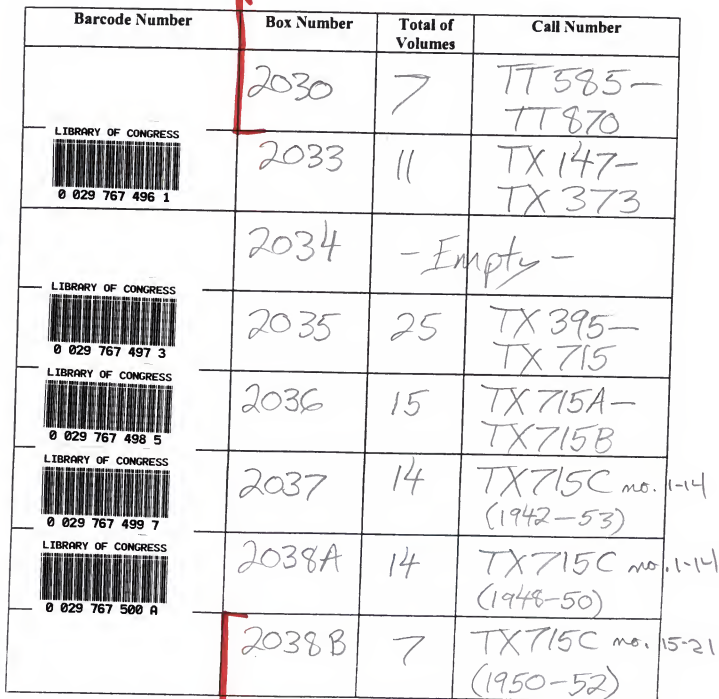 Barcode Number Box Number Total of Volumes Call Number
2030 7 TT 585— TT 870
LIBRARY OF CONGRESS
0 029 767 496 1
2033 11 TX 147— TX 373
2034 - Empty -
LIBRARY OF CONGRESS
0 029 767 497 3
2035 25 TX 395— TX 715
LIBRARY OF CONGRESS
0 029 767 498 5
2036 15 TX 715A— TX715B
LIBRARY OF CONGRESS
0 029 767 499 7
2037 14 TX715C no. 1-14
(1942-53)
LIBRARY OF CONGRESS
0 029 767 500 A
2038A 14 TX715C no. 1-14
(1948-50)
2038B 7 TX715C no. 15-21
(1950-52)